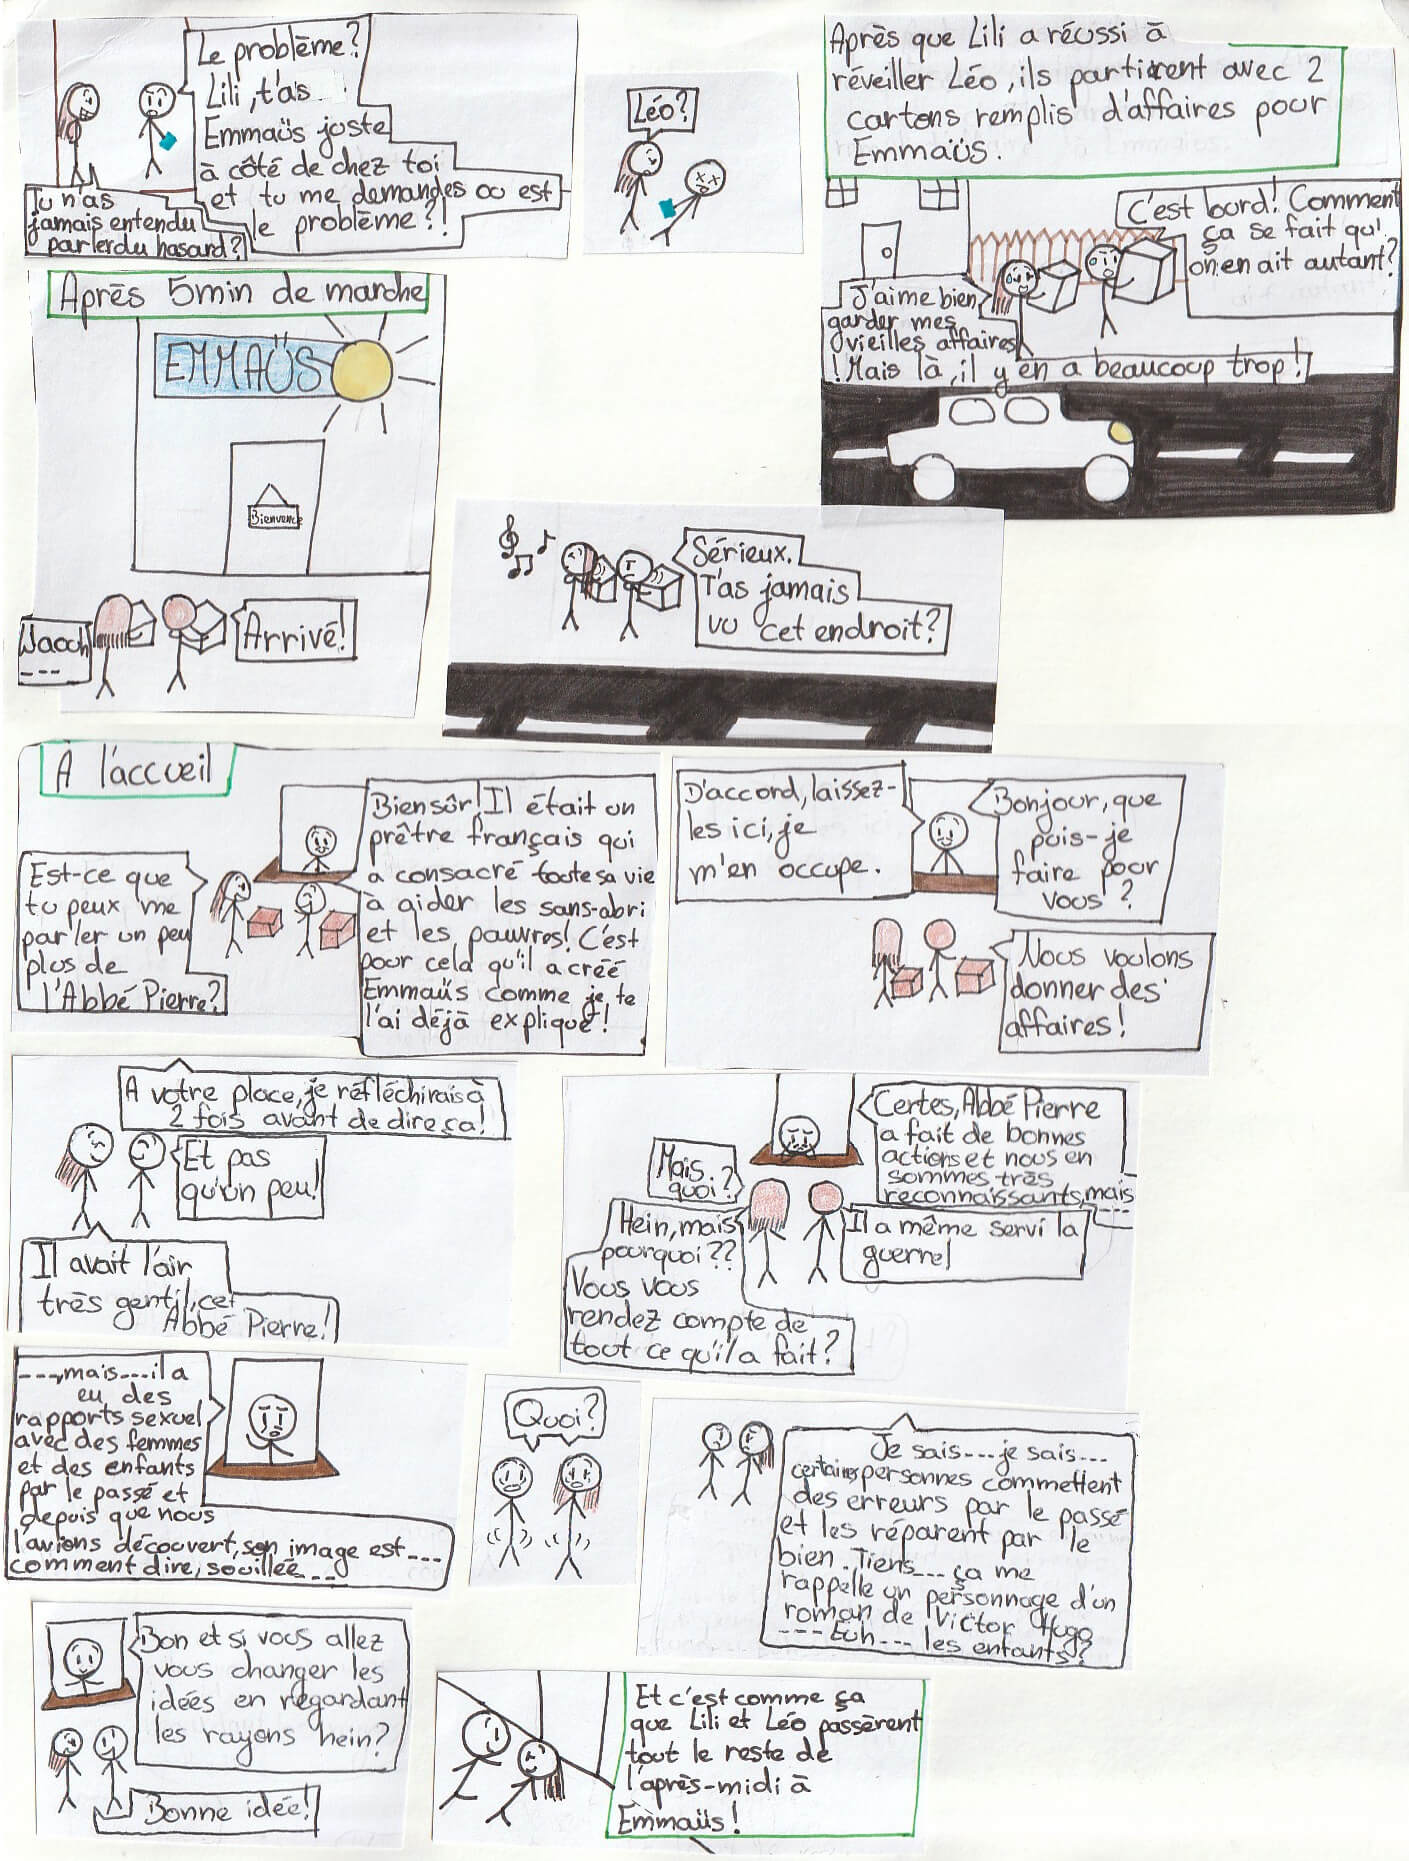 Le problème?
Lili, t'as
Emmaüs juste
à côté de chez toi
et tu me demandes ou est
le problème?!
Tu n'as
jamais entendu
parler du hasard?
Léo?
Après que Lili a réussi à
réveiller Léo, ils partirent avec 2
cartons remplis d'affaires pour
Emmaüs.
C'est lourd! Comment
ça se fait qu'
on en ait autant?
J'aime bien
garder mes
vieilles affaires
! Mais là, il y en a beaucoup trop!
Après 5min de marche
EMMAÜS
Bienvenue
Waooh
---
Arrivé!
Sérieux.
T'as jamais
vu cet endroit?
A l'accueil
Est-ce que
tu peux me
parler un peu
plus de
l'Abbé Pierre?
Bien sûr! Il était un
prêtre français qui
a consacré toute sa vie
à aider les sans-abri
et les pauvres! C'est
pour cela qu'il a créé
Emmaüs comme je te
l'ai déjà expliqué!
D'accord, laissez-
les ici, je
m'en occupe.
Bonjour, que
puis-je
faire pour
vous?
Nous voulons
donner des
affaires!
A votre place, je réfléchirais à
2 fois avant de dire ça!
Et pas
qu'un peu!
Il avait l'air
très gentil, cet
Abbé Pierre!
Certes, Abbé Pierre
a fait de bonnes
actions et nous en
sommes très
reconnaissants, mais
---
Mais
quoi?
Il a même servi la
guerre!
Hein, mais
pourquoi??
Vous vous
rendez compte de
tout ce qu'il a fait?
---, mais---il a
eu des
rapports sexuel
avec des femmes
et des enfants
par le passé et
depuis que nous
l'avions découvert, son image est---
comment dire, souillée---
Quoi?
Je sais---je sais---
certaines personnes commettent
des erreurs par le passé
et les réparent par le
bien. Tiens---ça me
rappelle un personnage d'un
roman de Victor Hugo
---Euh---les enfants?
Bon et si vous allez
vous changer les
idées en regardant
les rayons hein?
Bonne idée!
Et c'est comme ça
que Lili et Léo passèrent
tout le reste de
l'après-midi à
Emmaüs!